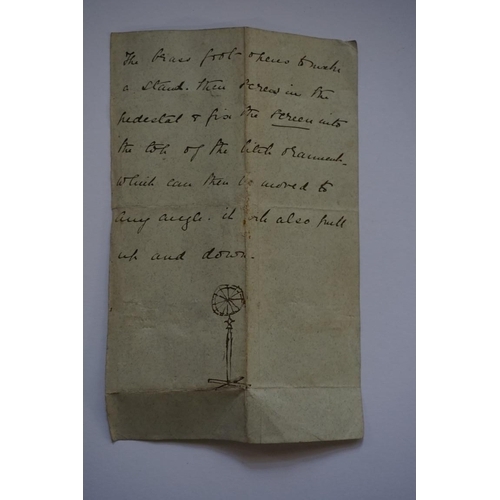 The brass foot opens to make
a stand. then screw in the
pedestal & fix the screen into
the top of the little ornament.
which can then be moved to
any angle. it will also pull
up and down.